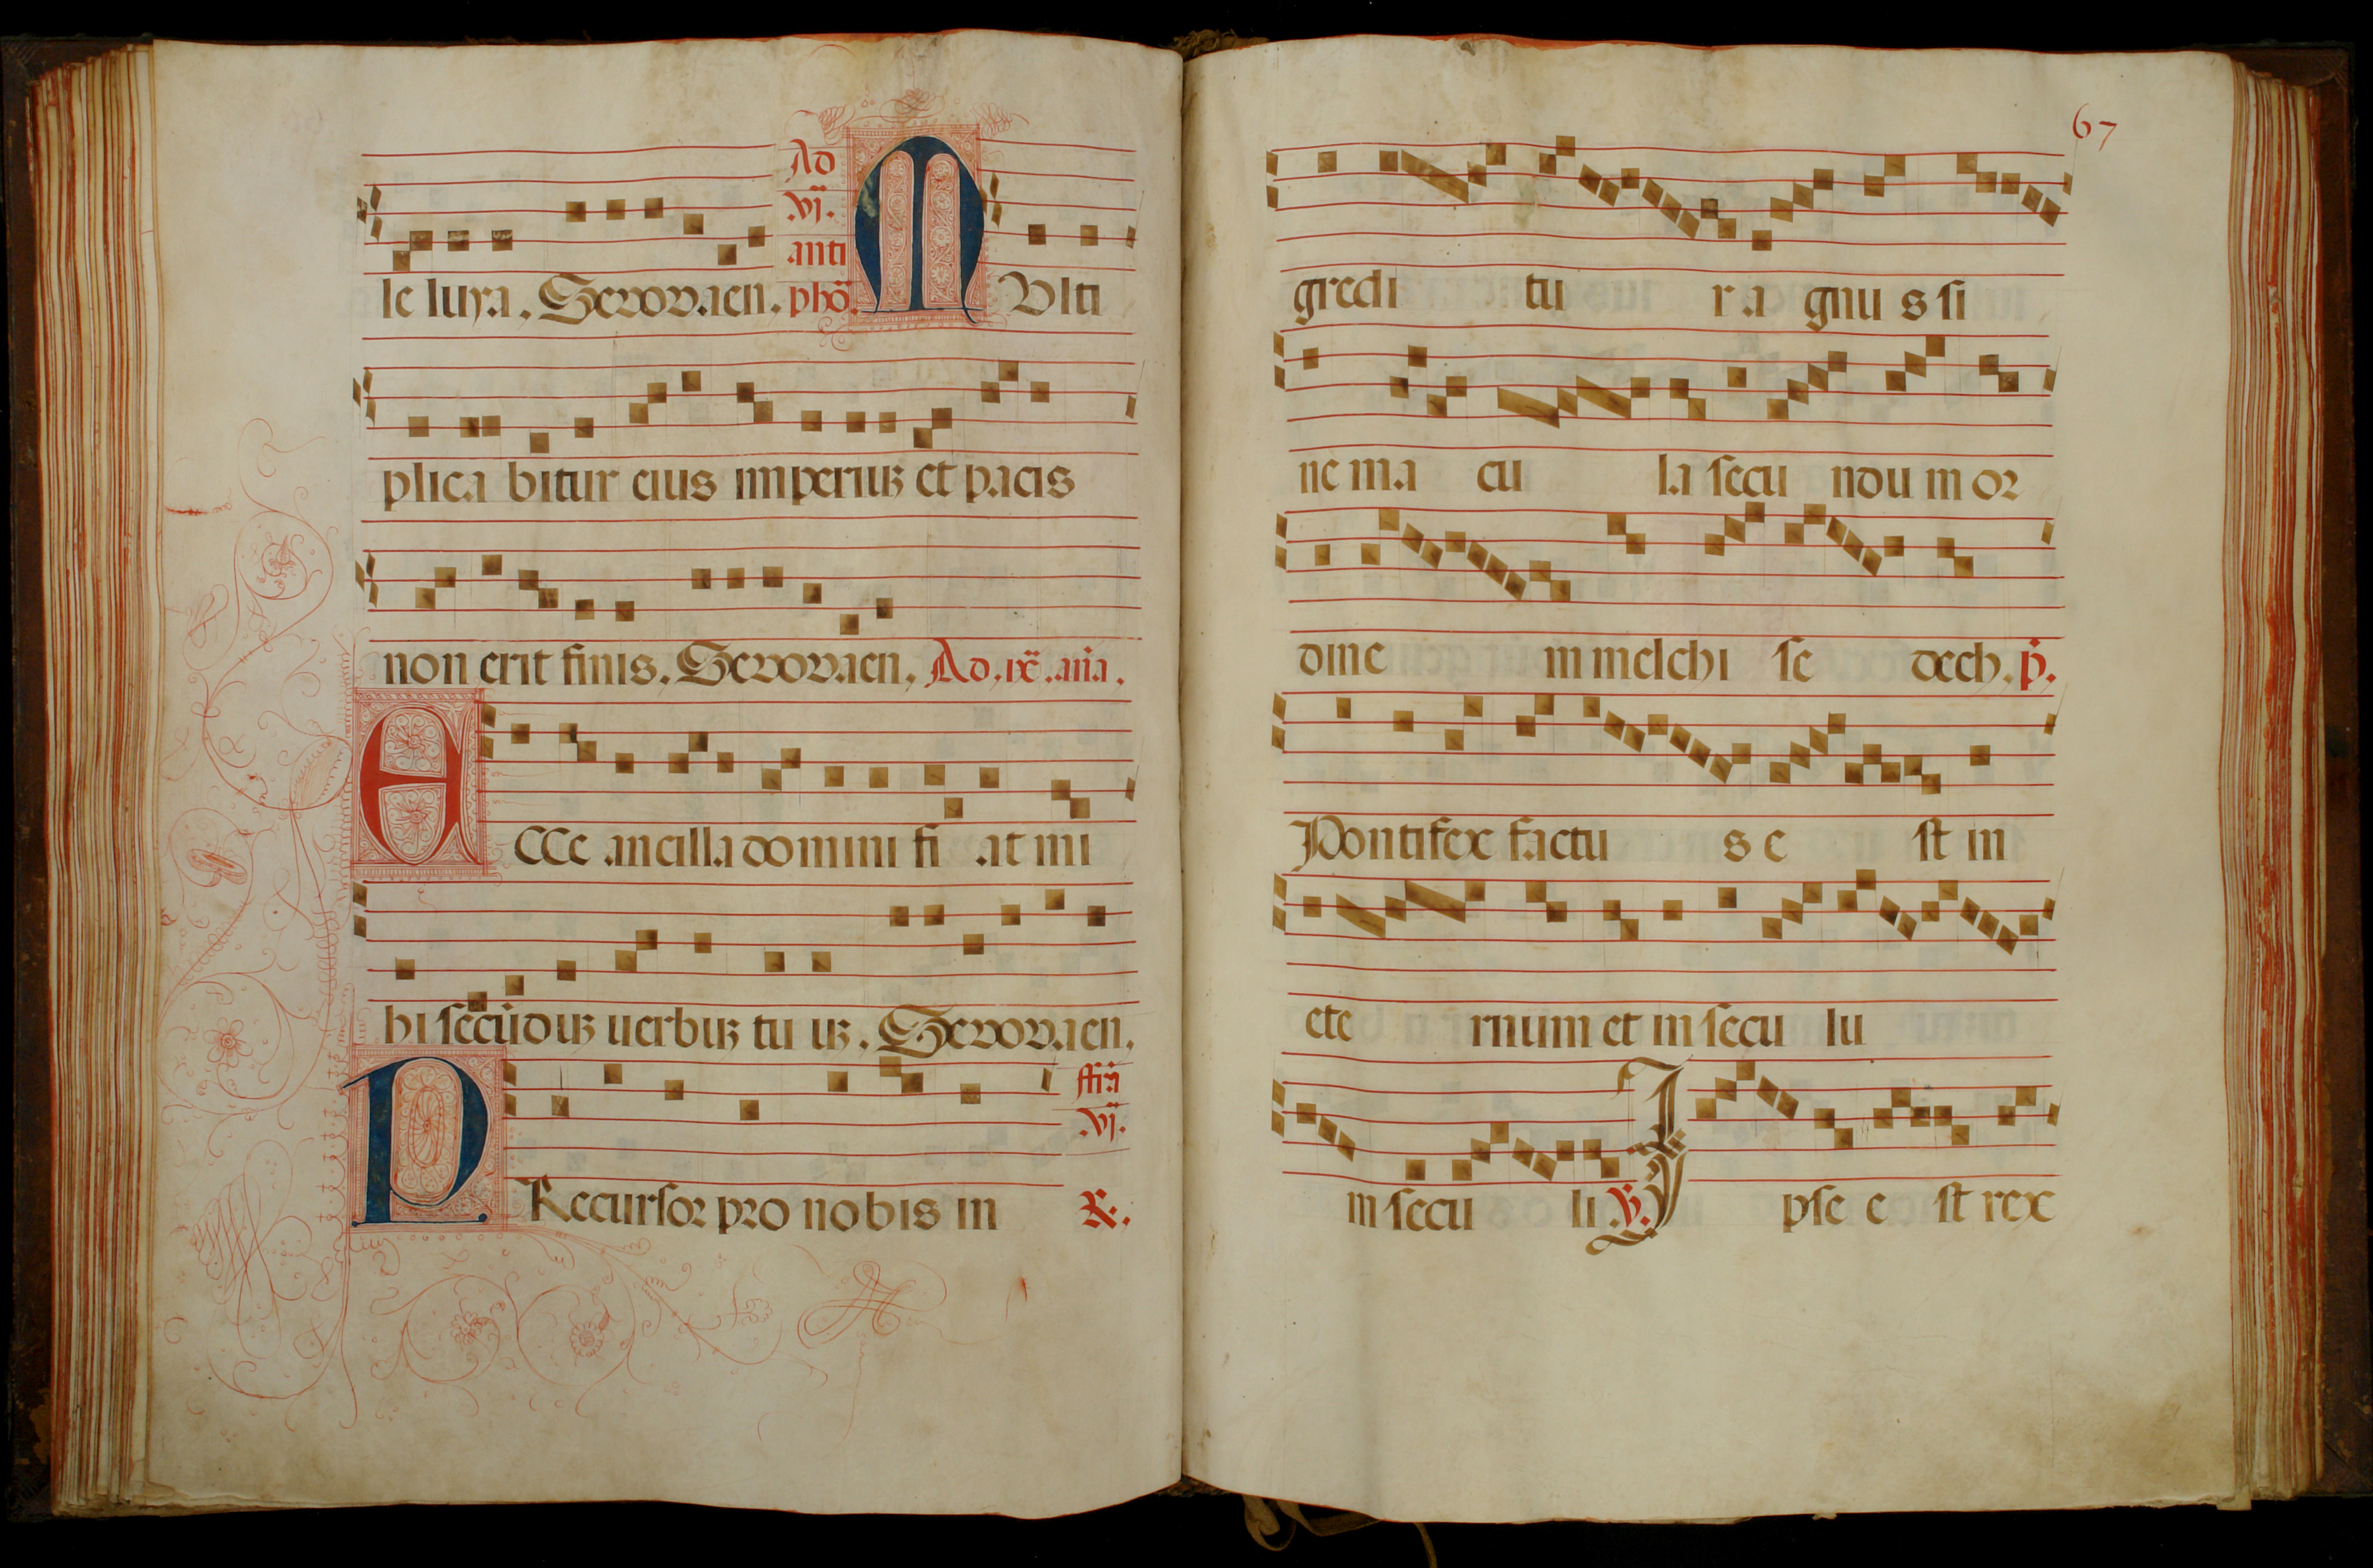 le luya. Seuouaen. Ad .vj. anti phō. MVlti
plica bitur eius imperiuz et pacis
non erit finis. Seuouaen. Ad .ix. aña.
ECCe ancilla domini fi at mi
hi secūduz uerbuz tu uz. Seuouaen.
PRecursor pro nobis in .vj. R.
67
gredi tu r a gnu s si
ne ma cu la secu ndu m or
dine in melchi se dech. p.
Pontifex factu s e st in
ete rnum et in secu lu
in secu li V. Ipse e st rex